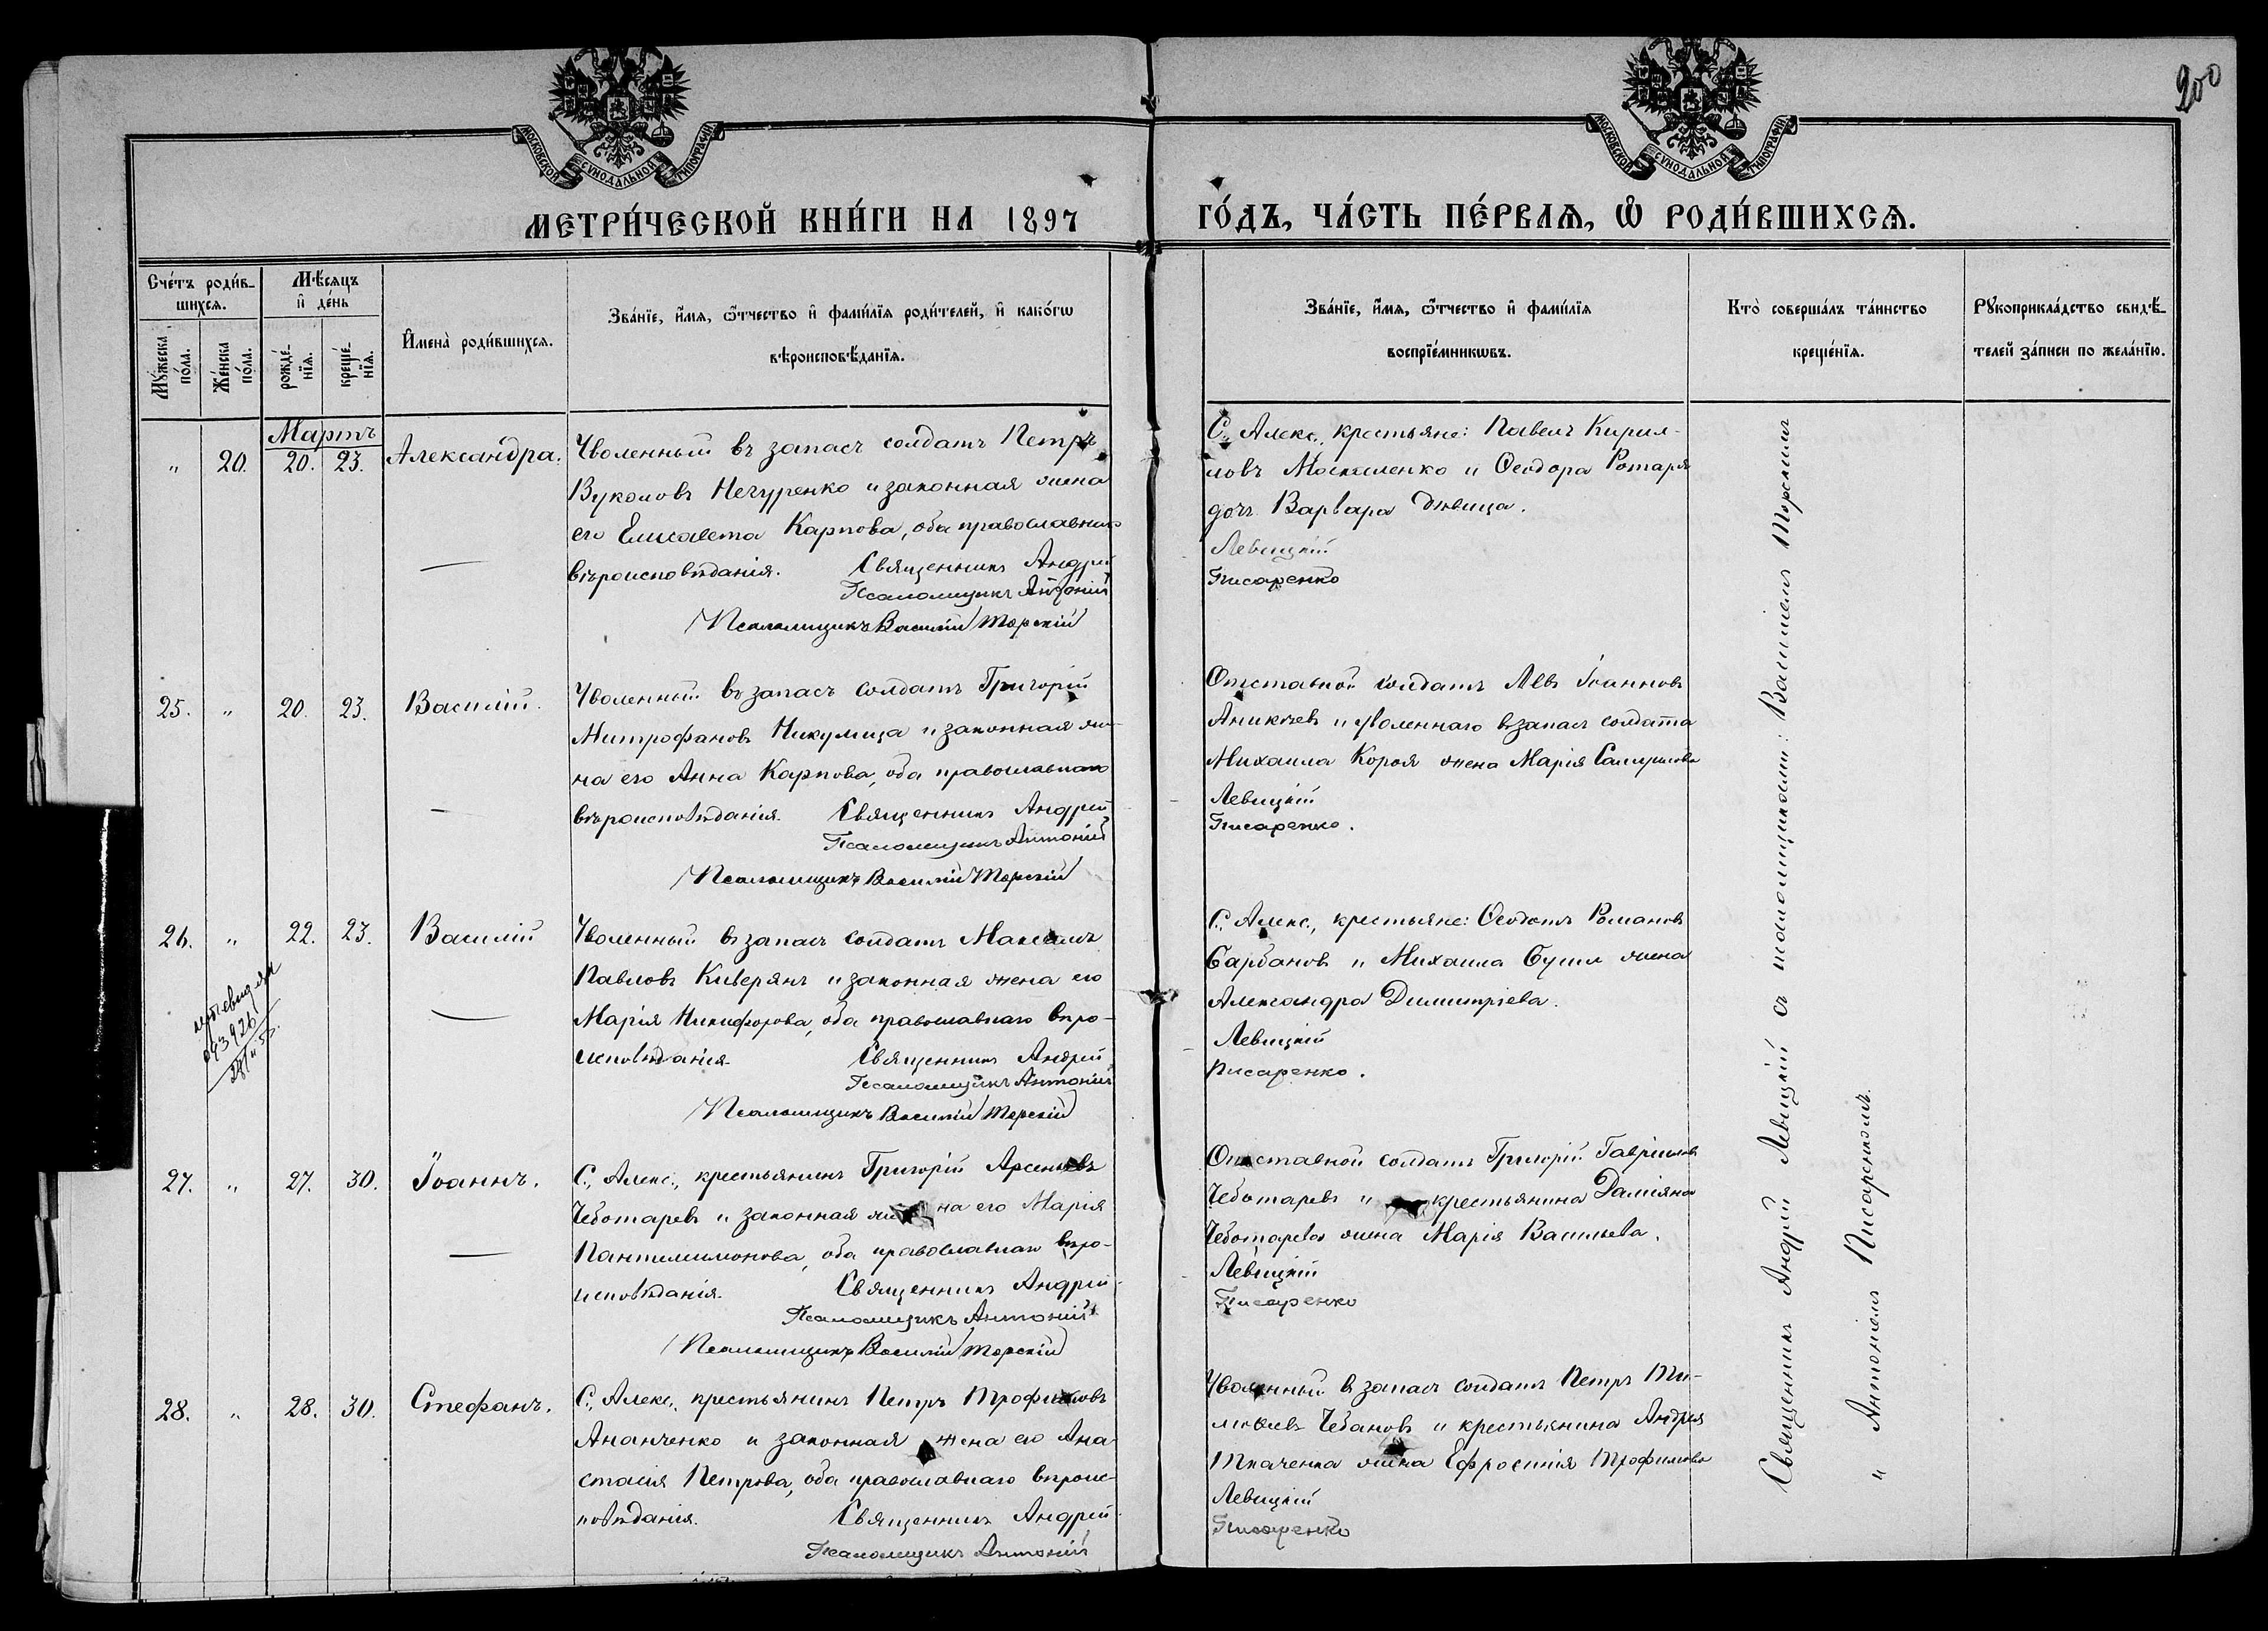 200
МОСКОВСКОЙ СѴНОДАЛЬНОЙ ТИПОГРАФІИ
МОСКОВСКОЙ СѴНОДАЛЬНОЙ ТИПОГРАФІИ
МЕТРИ́ЧЕСКОЙ КНИ́ГИ НА 1897 ГО́ДЪ, ЧА́СТЬ ПЕ́РВАѦ, Ѽ РОДИ́ВШИХСѦ.
Сче́тъ роди́в-
шихсѧ.
Мꙋ́жеска
по́ла.
Же́нска
по́ла.
Мѣ́сяцъ
и҆ де́нь
рожде́-
нїѧ.
креще́-
нїѧ.
И҆мена̀ роди́вшихсѧ.
Зва́нїе, и҆́мѧ, ѻ҆́тчество и҆ фами́лїѧ роди́телей, и҆ како́гѡ
вѣроисповѣ́данїѧ.
Зва́нїе, и҆́мѧ, ѻ҆́тчество и҆ фами́лїѧ
воспрїе́мникѡвъ.
Кто̀ соверша́лъ та́инство
креще́нїѧ.
Рꙋкоприкла́дство свидѣ́-
телей за́писи по жела́нїю.
Мартъ
" 20. 20. 23. Александра.
Уволенный въ запасъ солдатъ Петръ
Вуколовъ Нечуренко и законная жена
его Елисавета Карпова, оба православнаго
вѣроисповѣданія. Священникъ Андрей
Псаломщикъ Антоній
Псаломщикъ Василій Торскій
С. Алекс., крестьяне: Павелъ Кирил-
ловъ Москаленко и Ѳеодора Ротаря
дочь Варвара дѣвица.
Левицкій
Писаренко
25. " 20. 23. Василій.
Уволенный въ запасъ солдатъ Григорій
Митрофановъ Никулица и законная же-
на его Анна Карпова, оба православнаго
вѣроисповѣданія. Священникъ Андрей
Псаломщикъ Антоній
Псаломщикъ Василій Торскій
Отставной солдатъ Левъ Іоанновъ
Аникѣевъ и уволеннаго въ запасъ солдата
Михаила Короя жена Марія
Левицкій
Писаренко.
26. " 22. 23. Василій
043926
Уволенный въ запасъ солдатъ Максимъ
Павловъ Киверянъ и законная жена его
Марія Никифорова, оба православнаго вѣро-
исповѣданія. Священникъ Андрей
Псаломщикъ Антоній
Псаломщикъ Василій Торскій
С. Алекс., крестьяне: Ѳеодотъ Романовъ
Барбановъ и Михаила жена
Александра Димитріева.
Левицкій
Писаренко.
27. " 27. 30. Іоаннъ.
С. Алекс., крестьянинъ Григорій Арсеньевъ
Чеботаревъ и законная жена его Марія
Пантелимонова, оба православнаго вѣро-
исповѣданія. Священникъ Андрей
Псаломщикъ Антоній
Псаломщикъ Василій Торскій
Отставной солдатъ Григорій Гавріиловъ
Чеботаревъ и крестьянина Даміяна
Чеботарева жена Марія Васильева.
Левицкій
Писаренко
28. " 28. 30. Стефанъ.
С. Алекс. крестьянинъ Петръ Трофимовъ
Ананченко и законная жена его Ана
стасія Петрова, оба православнаго вѣроис-
повѣданія. Священникъ Андрей
Псаломщикъ Антоній
Уволенный въ запасъ солдатъ Петръ Ти-
моѳеевъ Чебановъ и крестьянина Андрея
Ткаченка жена Ефросинія Трофимова
Левицкій
Писаренко
Священникъ Андрей Левицкій съ псаломщиками: Василіемъ Торскимъ
и Антоніемъ Писаренкомъ.